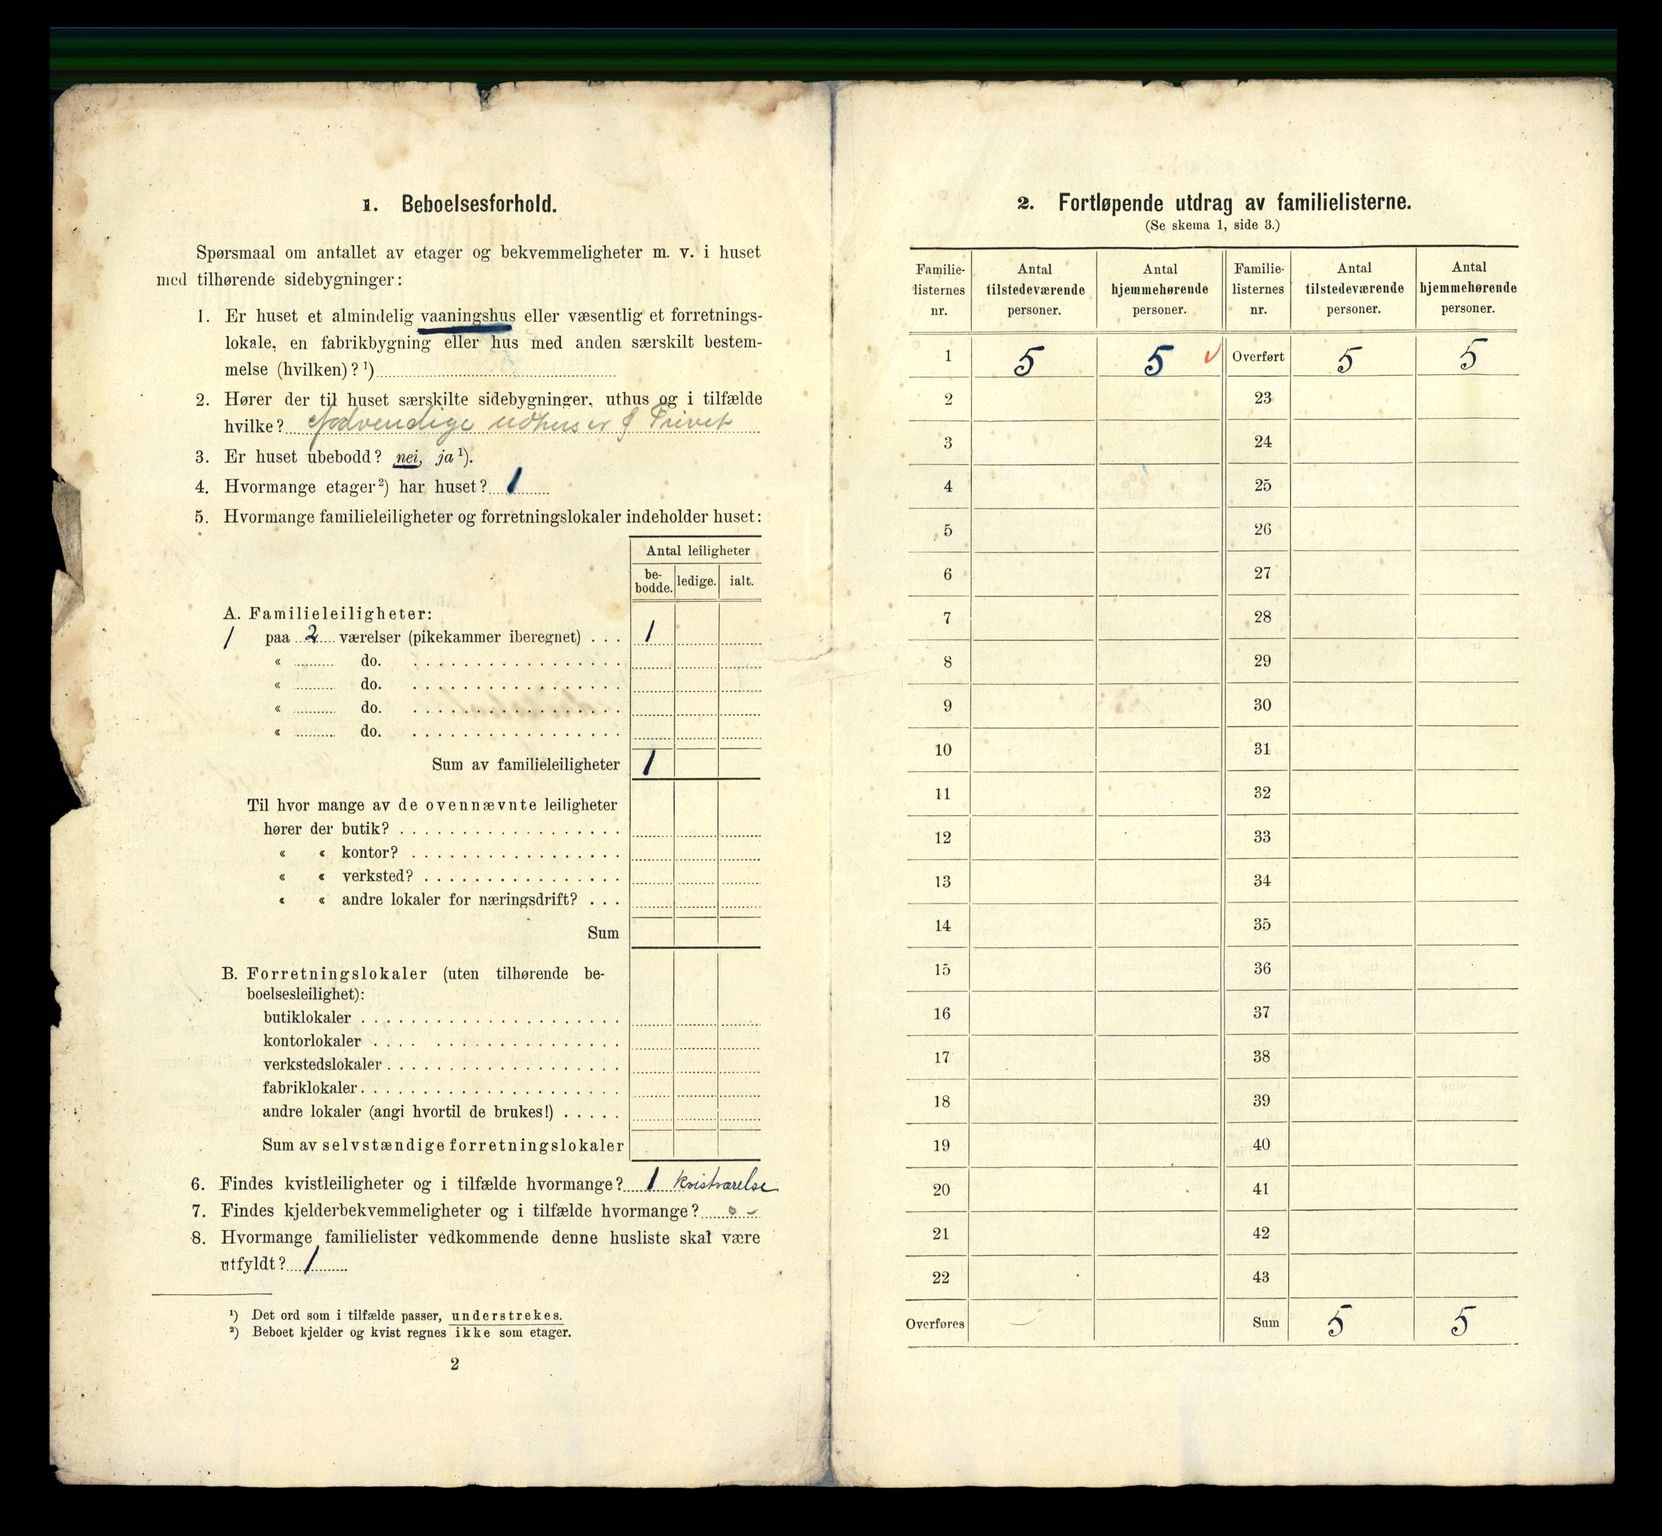 1. Beboelsesforhold.
Spørsmaal om antallet av etager og bekvemmeligheter m. v. i huset
med tilhørende sidebygninger:
1. Er huset et almindelig vaaningshus eller væsentlig et forretnings-
lokale, en fabrikbygning eller hus med anden særskilt bestem-
melse (hvilken)? ¹)
2. Hører der til huset særskilte sidebygninger, uthus og i tilfælde
hvilke? Nødvendige udhuser & Privet
3. Er huset ubebodd? nei, ja ¹).
4. Hvormange etager ²) har huset? 1
5. Hvormange familieleiligheter og forretningslokaler indeholder huset:
Antal leiligheter
be-
bodde. ledige. ialt.
A. Familieleiligheter:
1 paa 2 værelser (pikekammer iberegnet) . . . 1
« do.
« do.
« do.
« do.
Sum av familieleiligheter 1
Til hvor mange av de ovennævnte leiligheter
hører der butik?
« « kontor?
« « verksted?
« « andre lokaler for næringsdrift?
Sum
B. Forretningslokaler (uten tilhørende be-
boelsesleilighet):
butiklokaler
kontorlokaler
verkstedslokaler
fabriklokaler
andre lokaler (angi hvortil de brukes!)
Sum av selvstændige forretningslokaler
6. Findes kvistleiligheter og i tilfælde hvormange? 1 kvistværelse
7. Findes kjelderbekvemmeligheter og i tilfælde hvormange? 0 -
8. Hvormange familielister vedkommende denne husliste skal være
utfyldt? 1
¹) Det ord som i tilfælde passer, understrekes.
²) Beboet kjelder og kvist regnes ikke som etager.
2
2. Fortløpende utdrag av familielisterne.
(Se skema 1, side 3.)
Familie- Antal Antal Familie- Antal Antal
listernes tilstedeværende hjemmehørende listernes tilstedeværende hjemmehørende
nr. personer. personer. nr. personer. personer.
1 5 5 v Overført 5 5
2 23
3 24
4 25
5 26
6 27
7 28
8 29
9 30
10 31
11 32
12 33
13 34
14 35
15 36
16 37
17 38
18 39
19 40
20 41
21 42
22 43
Overføres Sum 5 5